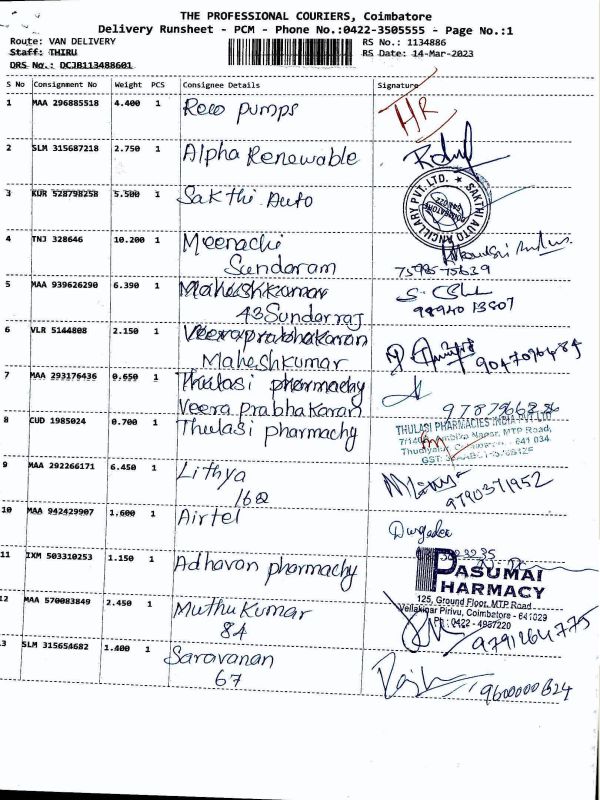 THE PROFESSIONAL COURIERS, Coimbatore
Delivery Runsheet - PCM - Phone No.:0422-3505555 - Page No.:1
Route: VAN DELIVERY
RS No.: 1134886
Staff: THIRU
RS Date: 14-Mar-2023
DRS No.: DCJB113488601
S No Consignment No Weight PCS Consignee Details Signature
1 MAA 296885518 4.400 1 Reco pumps HR
2 SLM 315687218 2.750 1 Alpha Renewable
3 KUR 528798258 5.500 1 Sakthi Auto
SAKTHI AUTO ANCILLARY PVT. LTD.
4 TNJ 328646 10.200 1 Meenachi
Sundaram
5 MAA 939626290 6.390 1 Maheshkumar
43 Sundarraj
6 VLR 5144808 2.150 1 Veeraprabhakaran
Maheshkumar
7 MAA 293176436 0.650 1 Thulasi pharmachy
Veera Prabhakaran
8 CUD 1985024 0.700 1 Thulasi pharmachy
THULASI PHARMACIES INDIA PVT LTD
Nagar, MTP Road,
641 034
GST:
9 MAA 292266171 6.450 1 Lithya
9790371952
10 MAA 942429907 1.600 1 Airtel
11 IXM 503310253 1.150 1 Adhavan pharmachy
PASUMAI
PHARMACY
125, Ground Floor, MTP Road
Vellakinar Pirivu, Coimbatore - 641029
0422 - 4987220
12 MAA 570083849 2.450 1 Muthu Kumar
84
9791264775
SLM 315654682 1.400 1 Saravanan
67
9600000624